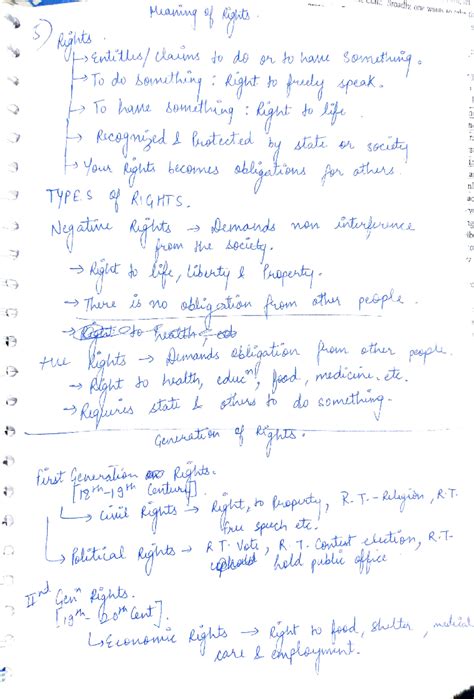 Meaning of Rights.
5) Rights
→ Entitles/claims to do or to have something.
→ To do something : Right to freely speak.
→ To have something : Right to life.
→ Recognized & Protected by state or society
→ Your Rights becomes obligations for others.
TYPES of RIGHTS.
Negative Rights → Demands non interference
from the society.
→ Right to life, liberty & Property.
→ There is no obligation from other people.
→ Right to health,
+ve Rights → Demands obligation from other people.
→ Right to health, educⁿ, food, medicine. etc.
→ Requires state & others to do something.
Generation of Rights.
First Generation Rights.
[18th-19th Century]
→ Civil Rights → Right, to Property, R.T.-Religion, R.T.
free speech etc.
→ Political Rights → R.T. Vote, R.T. Contest election, R.T.
hold public office
IInd Genⁿ Rights.
[19th - 20th Cent]
→ Economic Rights → Right to food, shelter, medical
care & employment.